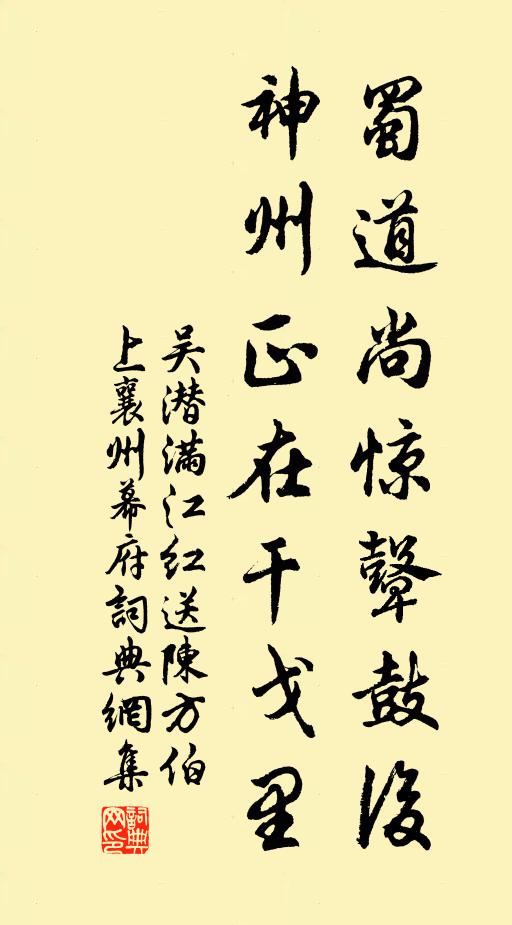 蜀道尚惊鼙鼓後
神州正在干戈里
吴潜满江红送陳方伯
上襄州幕府詞典網集
詞典
网印